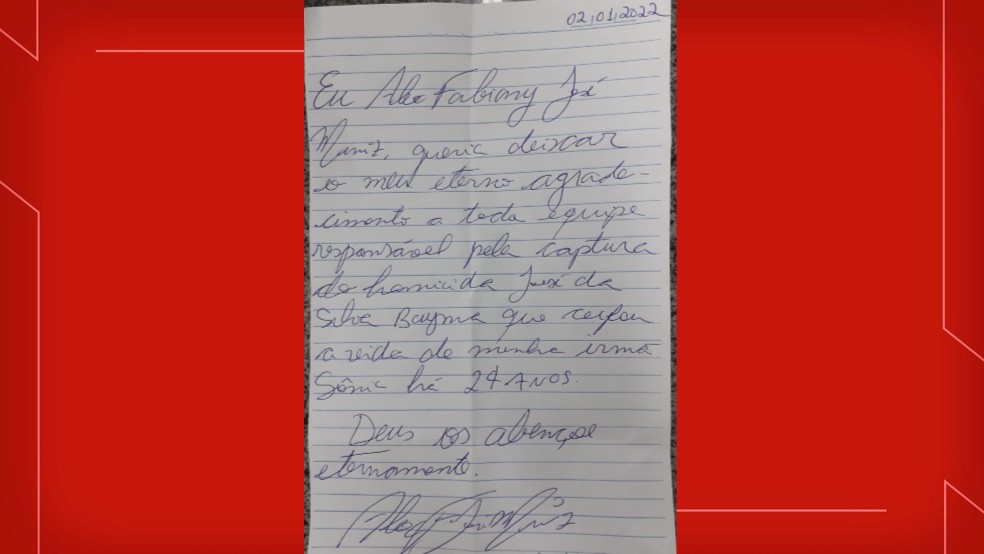 02,01,2022
Eu Alex Fabiany José
Muniz, queria deixar
o meu eterno agrade-
cimento a toda equipe
responsável pela captura
do homicida José da
Silva Bayma que ceifou
a vida de minha irmã
Sônia há 24 ANOS.
Deus os abençoe
eternamente.